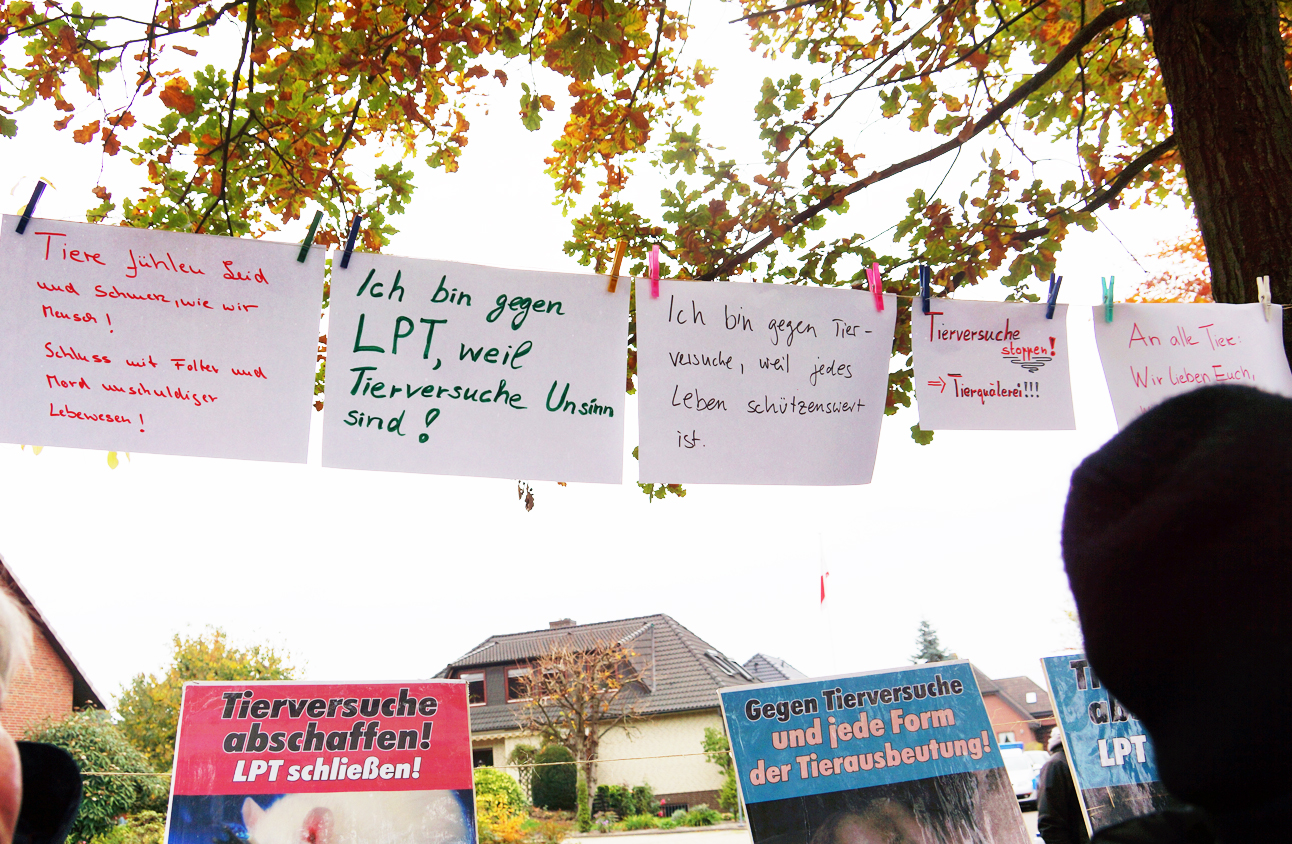 Tiere fühlen Leid
und Schmerz, wie wir
Mensch!
Schluss mit Folter und
Mord unschuldiger
Lebewesen!
Ich bin gegen
LPT, weil
Tierversuche Unsinn
sind!
Ich bin gegen Tier-
versuche, weil jedes
Leben schützenswert
ist.
Tierversuche
stoppen!
⇒ Tierquälerei!!!
An alle Tiere:
Wir lieben Euch,
Tierversuche
abschaffen!
LPT schließen!
Gegen Tierversuche
und jede Form
der Tierausbeutung!
LPT